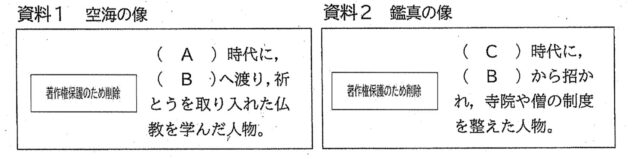 資料1 空海の像
( A )時代に,
( B )へ渡り,祈
とうを取り入れた仏
教を学んだ人物。
著作権保護のため削除
資料2 鑑真の像
( C )時代に,
( B )から招か
れ,寺院や僧の制度
を整えた人物。
著作権保護のため削除